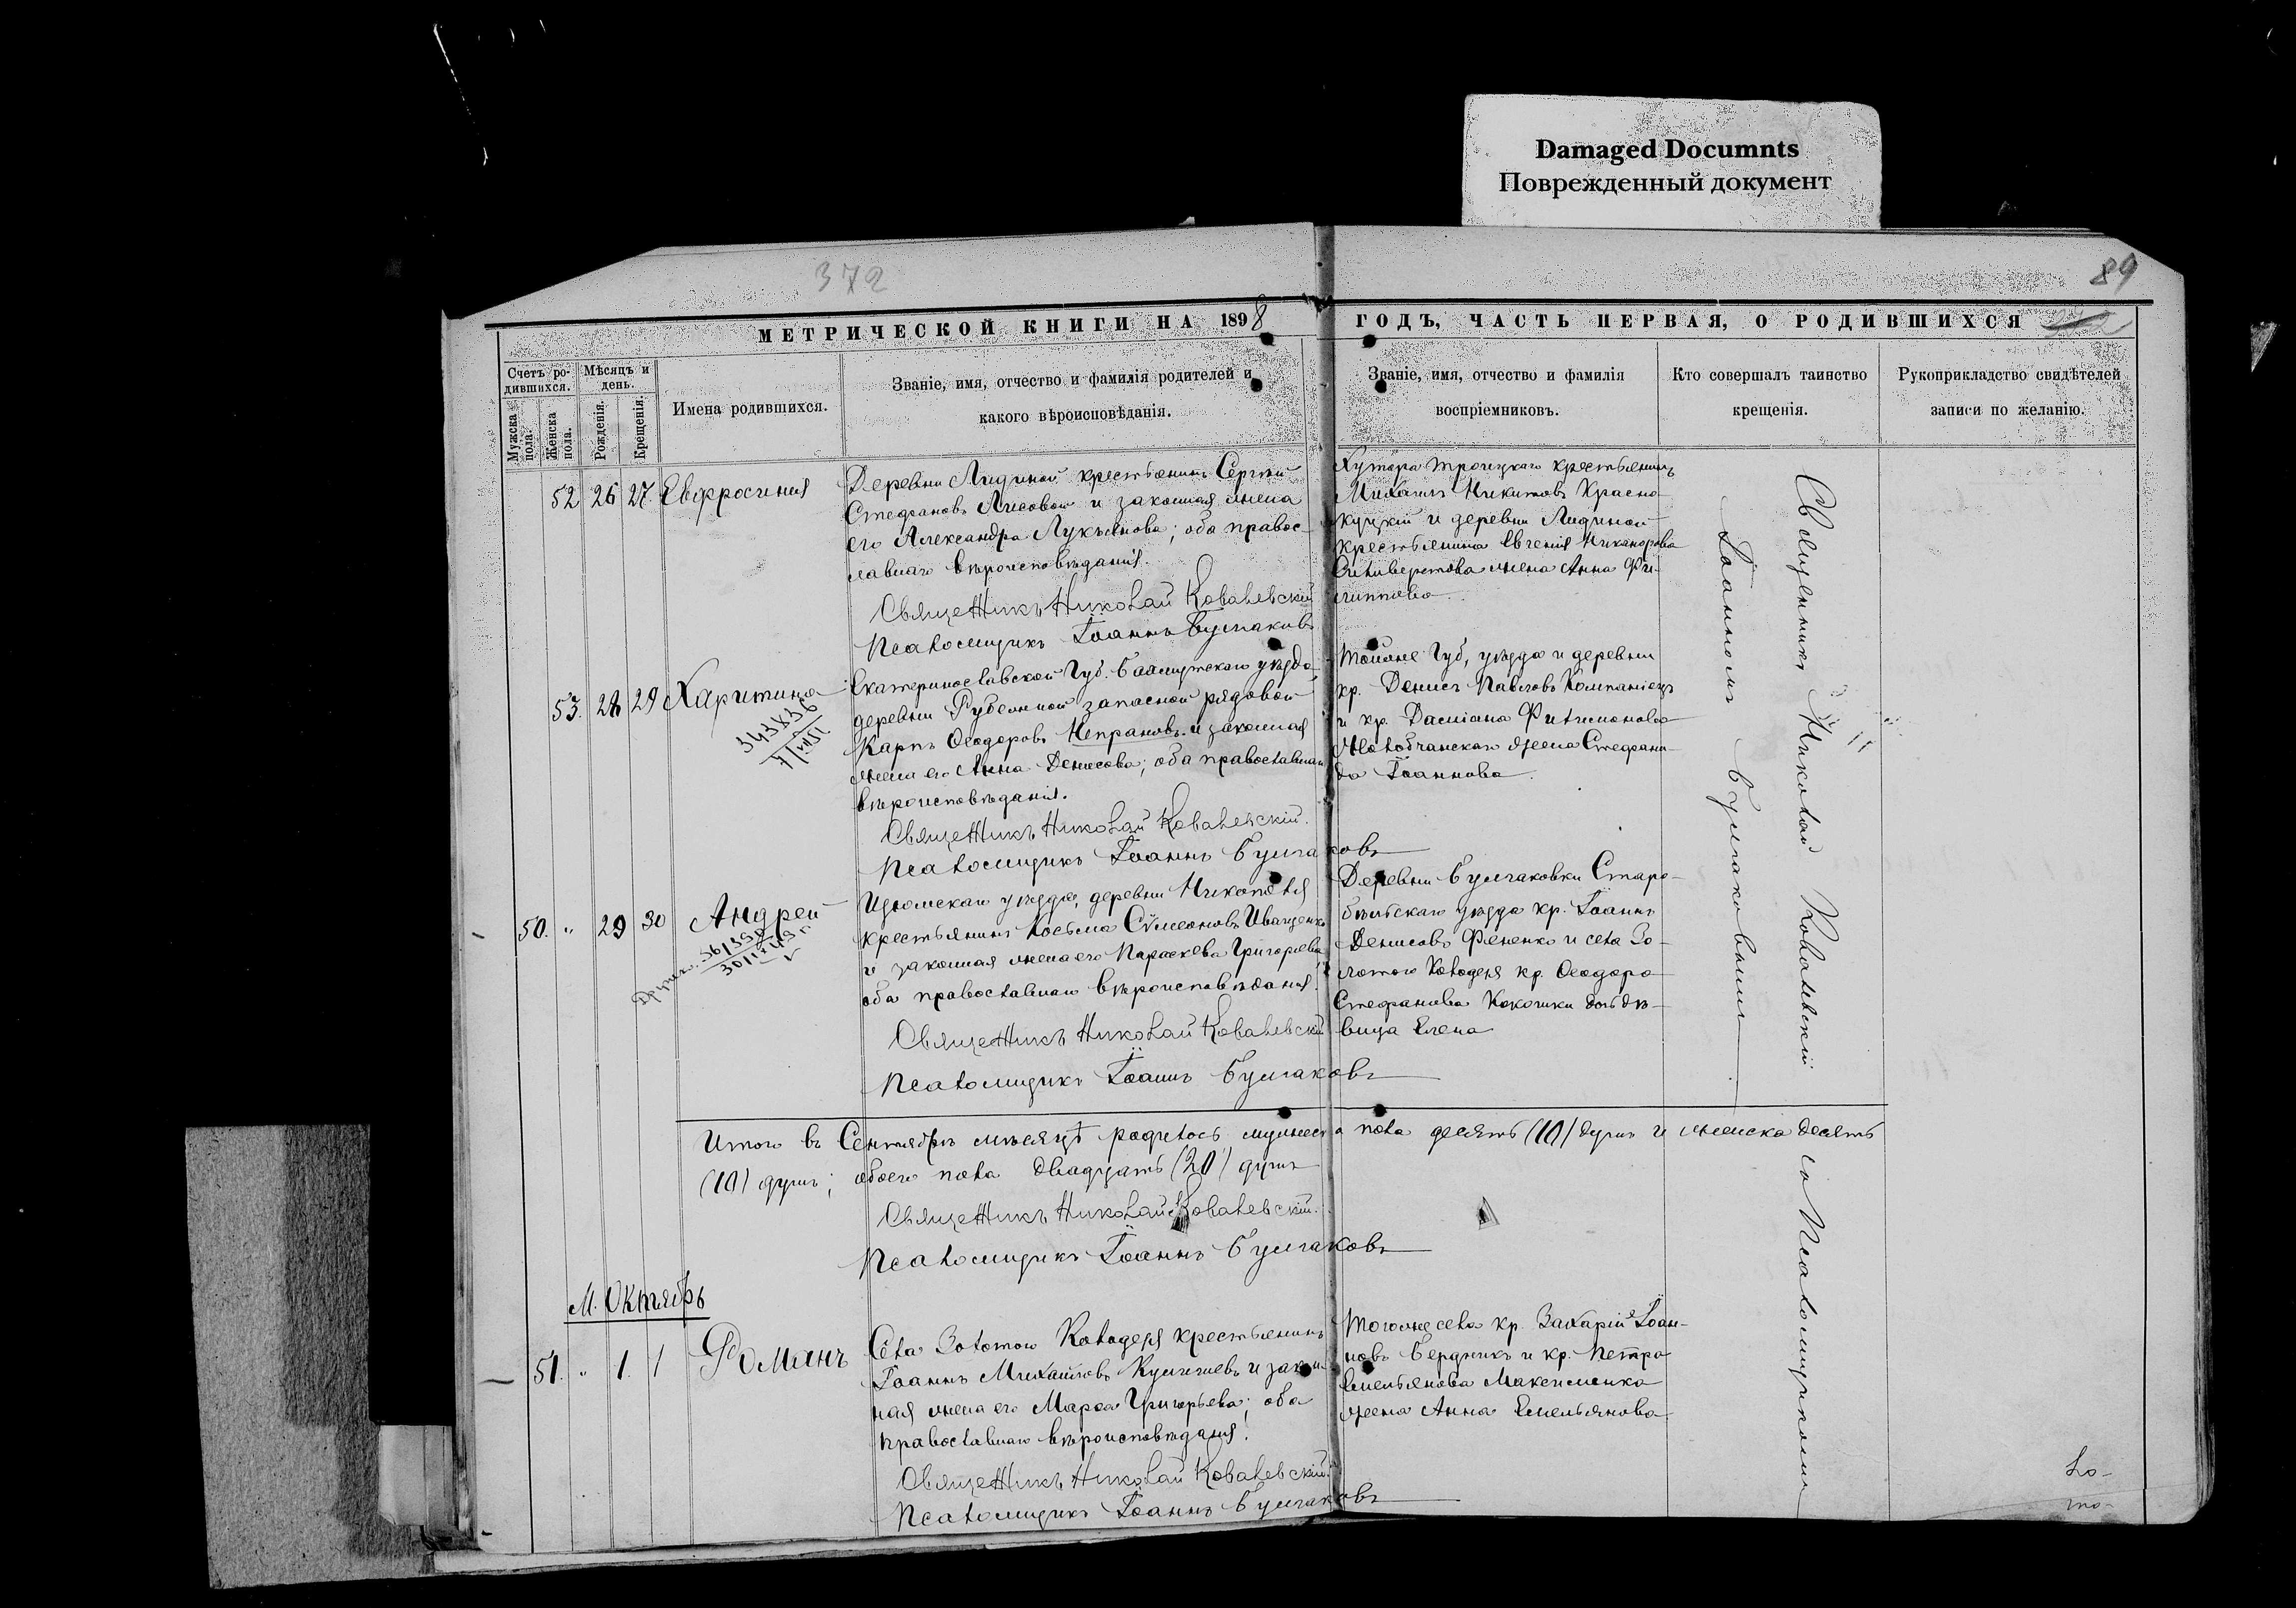 Damaged Documnts
Поврежденный документ
372
89
МЕТРИЧЕСКОЙ КНИГИ НА 1898
ГОДЪ, ЧАСТЬ ПЕРВАЯ, О РОДИВШИХСЯ
Счетъ ро-
дившихся.
Мужска
пола.
Женска
пола.
Мѣсяцъ и
день.
Рожденія.
Крещенія.
Имена родившихся.
Званіе, имя, отчество и фамилія родителей и
какого вѣроисповѣданія.
Званіе, имя, отчество и фамилія
воспріемниковъ.
Кто совершалъ таинство
крещенія.
Рукоприкладство свидѣтелей
записи по желанію.
52 26 27 Евфросинія
Деревни Лидиной крестьянинъ Сергѣй
Стефановъ Лисовой и законная жена
его Александра Лукьянова; оба правос-
лавнаго вѣроисповѣданія.
Священникъ Николай Ковалевскій
Псаломщикъ Іоаннъ Булгаковъ
Хутора Троицкаго крестьянинъ
Михаилъ Никитовъ Красно-
куцкій и деревни Лидиной
крестьянина Евгенія Никанорова
жена Анна Фи-
липпова
53. 28 29 Харитина
343836
Екатеринославской Губ. Бахмутскаго уѣзда
деревни Рубежной запасной рядовой
Карпъ Ѳеодоровъ Непрановъ и законная
жена его Анна Денисова; оба православнаго
вѣроисповѣданія.
Священникъ Николай Ковалевскій.
Псаломщикъ Іоаннъ Булгаковъ
Тойже Губ, уѣзда и деревни
кр. Денисъ Павловъ Компаніецъ
и кр. Даміана Филимонова
жена Стефани-
да Іоаннова.
50. " 29 30 Андрей
Изюмскаго уѣзда, деревни Никополя
крестьянинъ Косьма Сѵмеоновъ Иващенко
и законная жена его Параскева Григорьева
оба православнаго вѣроисповѣданія.
Священникъ Николай Ковалевскій
Псаломщикъ Іоаннъ Булгаковъ
Деревни Булгаковки Старо-
бѣльскаго уѣзда кр. Іоаннъ
Денисовъ Фененко и села Зо-
лотого Колодезя кр. Ѳеодора
Стефанова дочь дѣ-
вица Елена
Итого въ Сентябрѣ мѣсяцѣ родилось мужеска пола десять (10) душъ и женска десять
(10) душъ; обоего пола двадцать (20) душъ
Священникъ Николай Ковалевскій.
Псаломщикъ Іоаннъ Булгаковъ
М. Октябрь
51. " 1 1 Романъ
Села Золотого Колодезя крестьянинъ
Іоаннъ Михайловъ и закон-
ная жена его Марѳа Григорьева; оба
православнаго вѣроисповѣданія.
Священникъ Николай Ковалевскій.
Псаломщикъ Іоаннъ Булгаковъ
Тогоже села кр. Захарій Іоан-
новъ Бердникъ и кр. Петра
Емельянова Максименка
жена Анна Емельянова
Священникъ Николай Ковалевскій
съ Псаломщикомъ
Іоанномъ Булгаковымъ